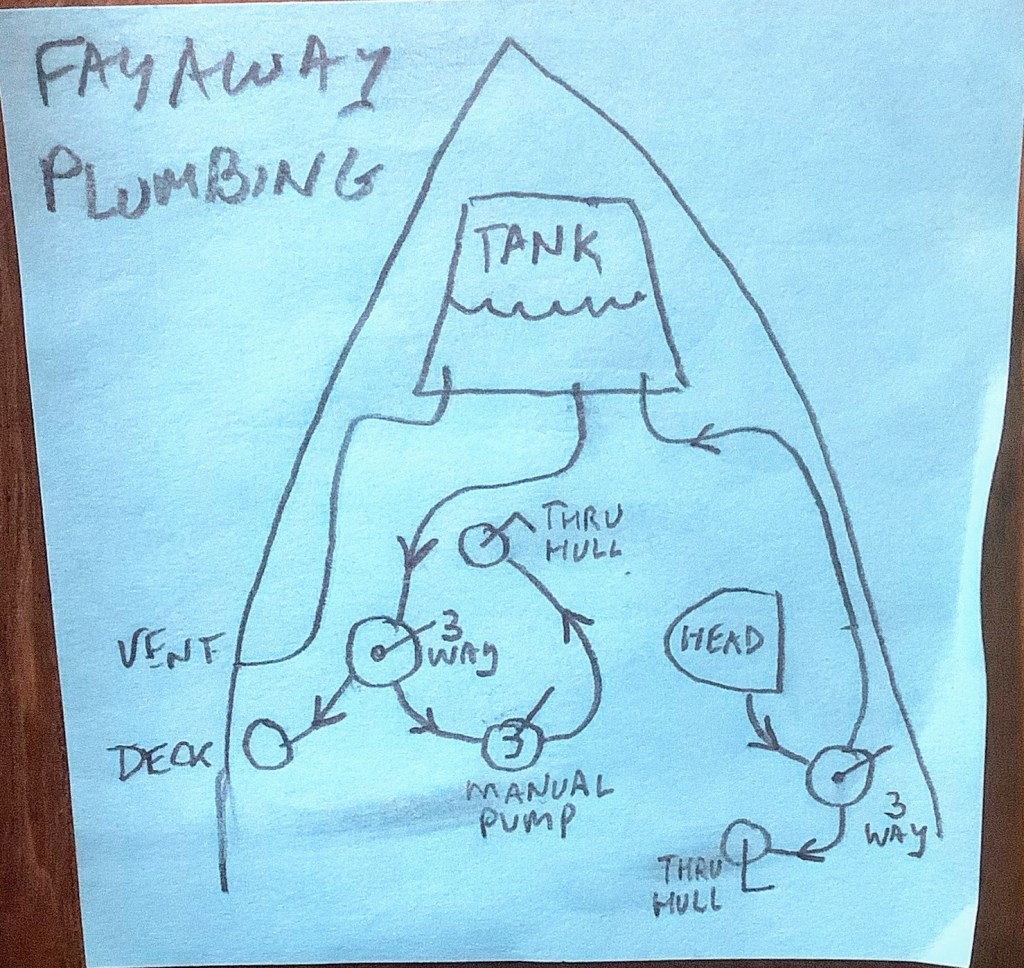 FAYAWAY
PLUMBING
TANK
THRU
HULL
3
WAY
HEAD
VENT
DECK
3
MANUAL
PUMP
3
WAY
THRU
HULL